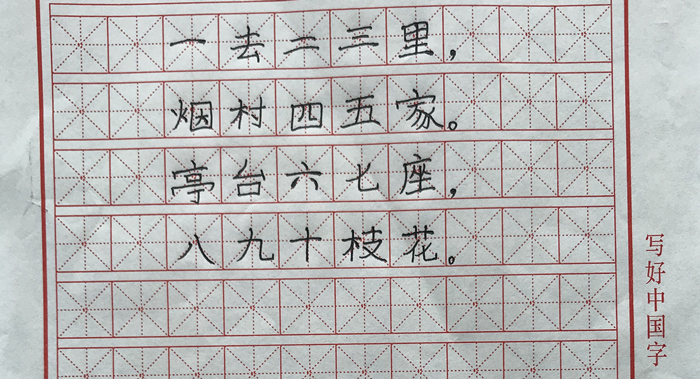 一去二三里，
烟村四五家。
亭台六七座，
八九十枝花。
写好中国字